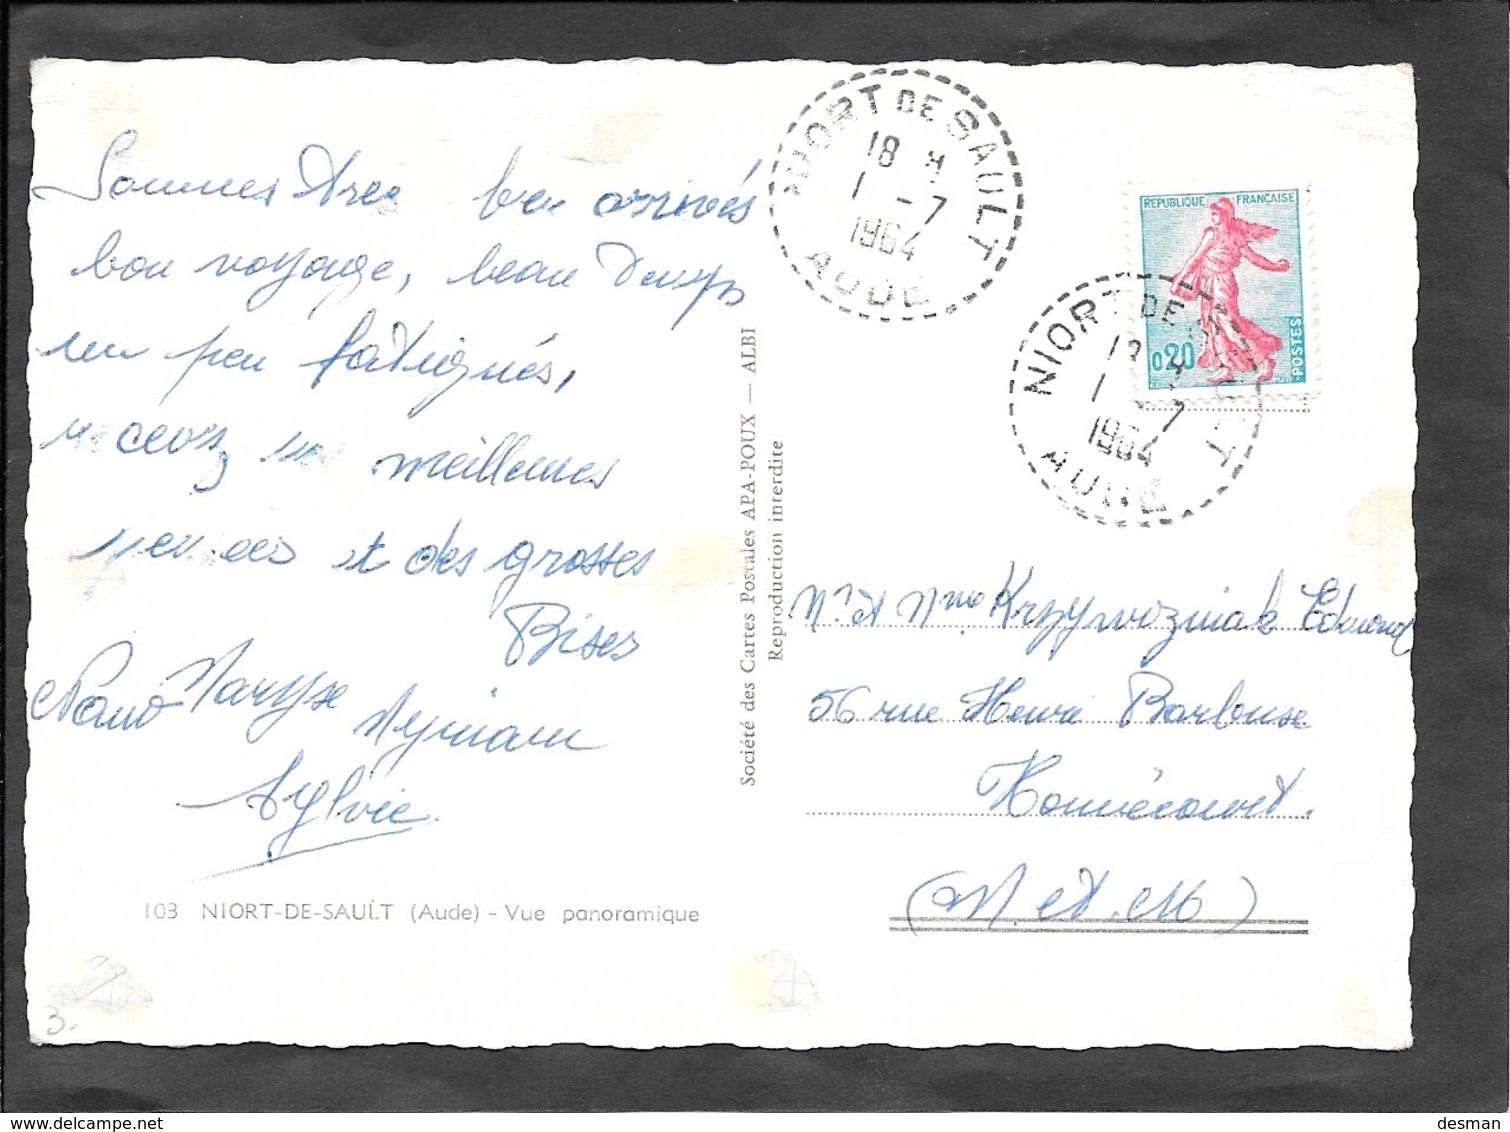 Sommes très bien arrivés
bon voyage, beau temps
un peu fatigués,
recevez nos meilleures
pensées et des grosses
Bises
Nano Maryse
Myriam
Sylvie
103 NIORT-DE-SAULT (Aude) - Vue panoramique
3.
Société des Cartes Postales APA-POUX — ALBI
Reproduction interdite
NIORT DE SAULT
18 H
1 -7
1964
AUDE
REPUBLIQUE FRANÇAISE
0,20
POSTES
NIORT DE SAULT
18 H
1 -7
1964
AUDE
Mr et Mme Krzywozniak Edmond
56 rue Henri Barbusse
Homécourt.
(M. et. M)
desman